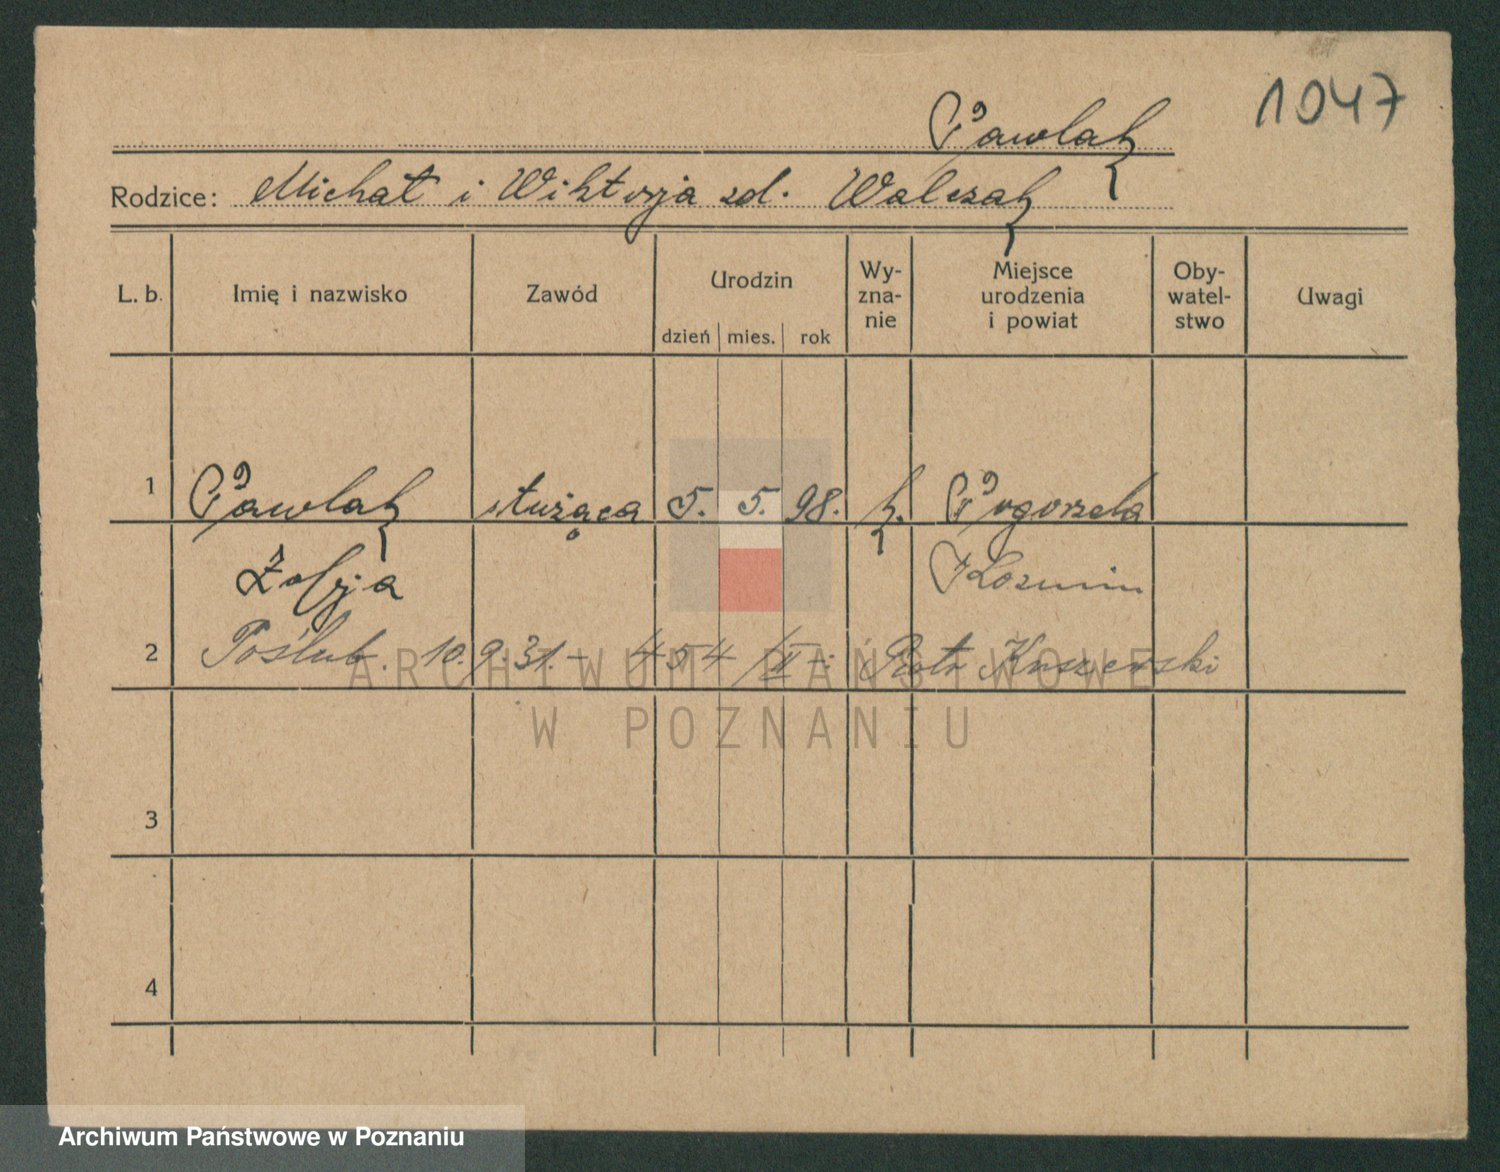 1047
Pawlak
Rodzice: Michał i Wiktorja zd. Walczak
L. b. Imię i nazwisko Zawód Urodzin Wy-zna-nie Miejsce urodzenia i powiat Oby-watel-stwo Uwagi
dzień mies. rok
1 Pawlak służąca 5. 5. 98. k. Pogorzela
Zofja Kozmin
2 Poślub. 10.9.31. - 454/II - Piotr
ARCHIWUM PAŃSTWOWE
W POZNANIU
3
4
Archiwum Państwowe w Poznaniu